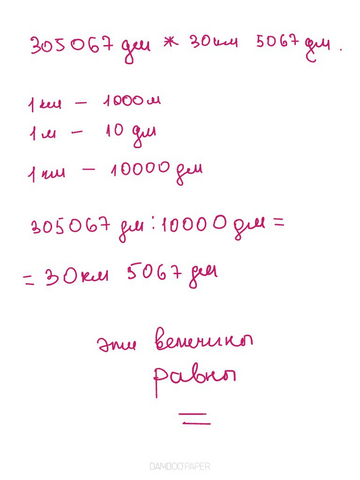 305067 дм * 30км 5067 дм.
1 км – 1000 м
1 м – 10 дм
1 км – 10000 дм
305067 дм : 10000 дм =
= 30 км 5067 дм
эти величины
равны
=
BAMBOO PAPER